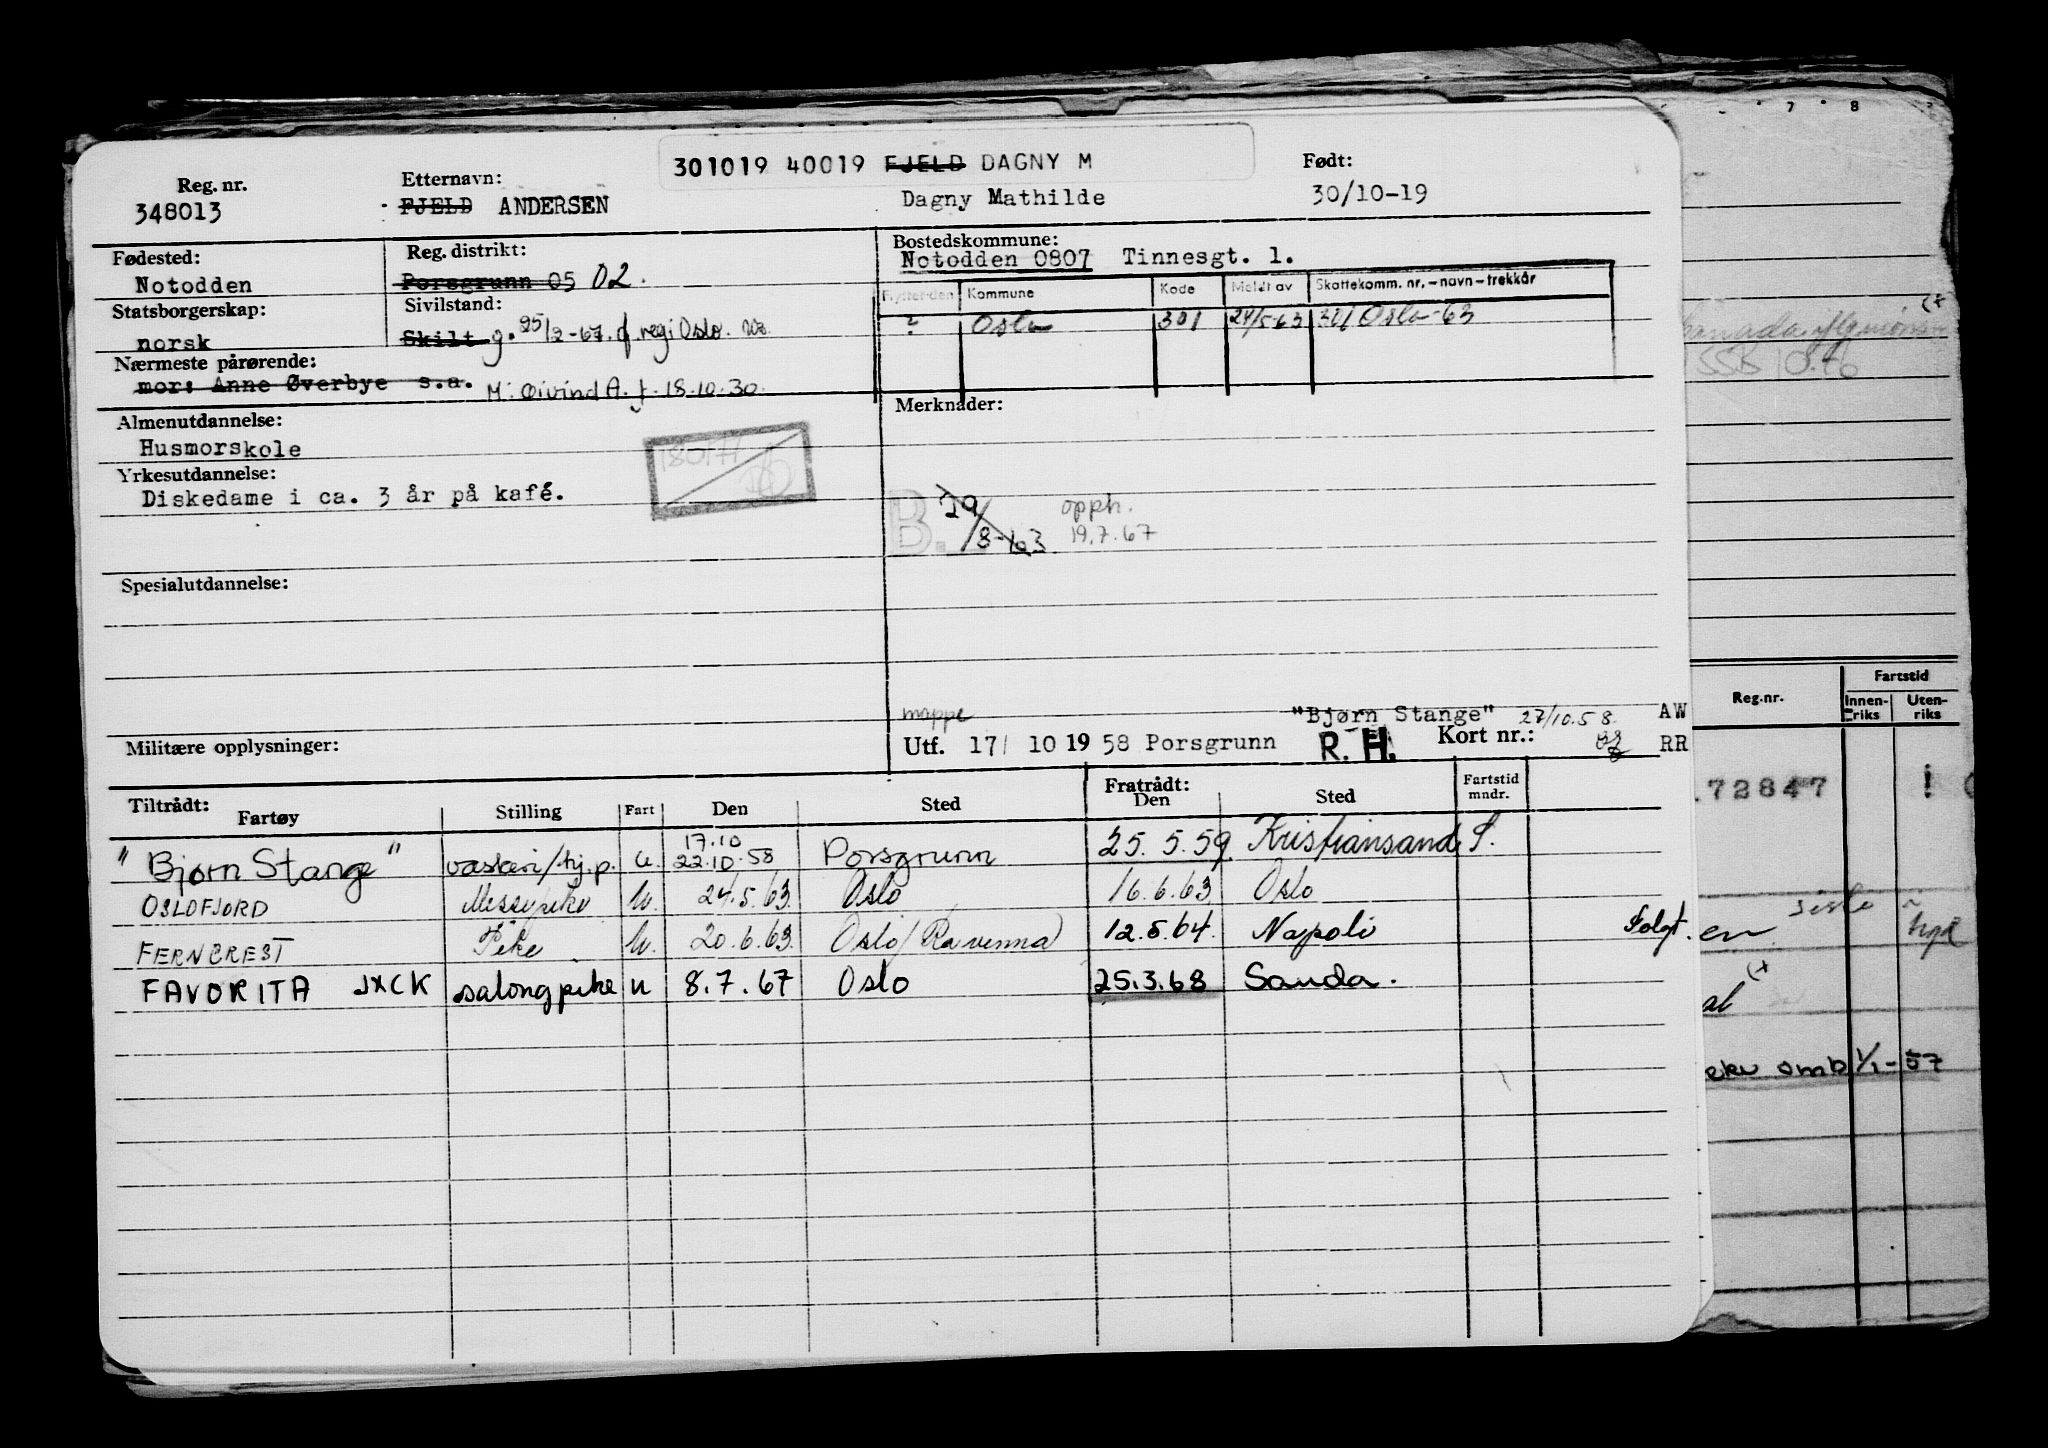 301019 40019 FJELD DAGNY M
Reg. nr. 348013
Etternavn: FJELD ANDERSEN
Dagny Mathilde
Født: 30/10-19
Fødested: Notodden
Reg. distrikt: Porsgrunn 05 02.
Bostedskommune: Notodden 0807 Tinnesgt. 1.
Statsborgerskap: norsk
Sivilstand: Skilt g. 25/2-67. f. regi Oslo.
Flyttet den Kommune Kode Meldt av Skattekomm. nr. – navn – trekkår
Oslo 301 24/5-63 301 Oslo-63
Nærmeste pårørende: mor: Anne Øverbye s.a. M: Øivind A. f. 18.10.30.
Almenutdannelse: Husmorskole
Merknader:
Yrkesutdannelse: Diskedame i ca. 3 år på kafé.
180171
B. 29/8-63 opph. 19.7.67
Spesialutdannelse:
mappe "Bjørn Stange" 27/10.58. AW
Militære opplysninger:
Utf. 17/ 10 1958 Porsgrunn R. H. Kort nr.: RR
Tiltrådt: Fartøy Stilling Fart Den Sted Fratrådt: Den Sted Fartstid mndr.
"Bjørn Stange" vaskeri/hj.p. u. 17.10 22.10.58 Porsgrunn 25.5.59. Kristiansand S.
OSLOFJORD Messepike u. 24.5.63. Oslo 16.6.63 Oslo
FERNCREST Pike u. 20.6.63. Oslo/Ravenna) 12.5.64. Napoli Solgt.
FAVORITA JXCK salongpike u 8.7.67 Oslo 25.3.68 Sauda.
7 8
SSB 10.46
Reg.nr. Fartstid Innenriks Utenriks
72847
siste
en
omb 1/1-57